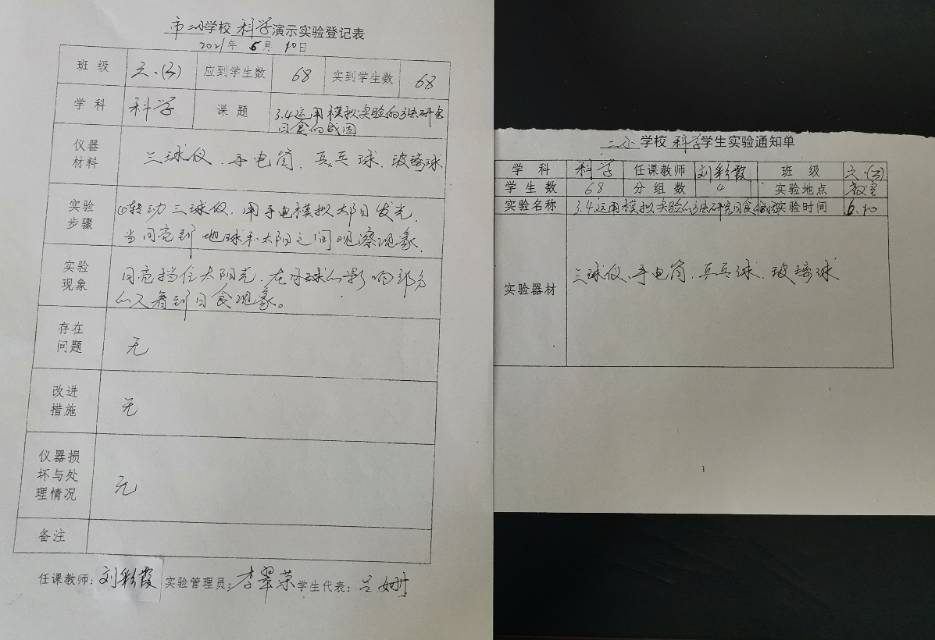 市二小学校科学演示实验登记表
2021年6月10日
班级 六.(3) 应到学生数 68 实到学生数 68
学科 科学 课题 3.4运用模拟实验的方法研究
日食的成因
仪器
材料
三球仪、手电筒、乒乓球、玻璃球
实验
步骤
转动三球仪,用手电模拟太阳发光,
当月亮到地球和太阳之间观察现象.
实验
现象
月亮挡住太阳光,在月球的影响部分
的人看到日食现象。
存在
问题
无
改进
措施
无
仪器损
坏与处
理情况
无
备注
任课教师:刘彩霞 实验管理员:李翠荣 学生代表:吕
二小学校科学学生实验通知单
学科 科学 任课教师 刘彩霞 班级 六.(3)
学生数 68 分组数 4 实验地点 教室
实验名称 3.4运用模拟实验的方法研究日食 实验时间 6.10
实验器材
三球仪、手电筒、乒乓球、玻璃球